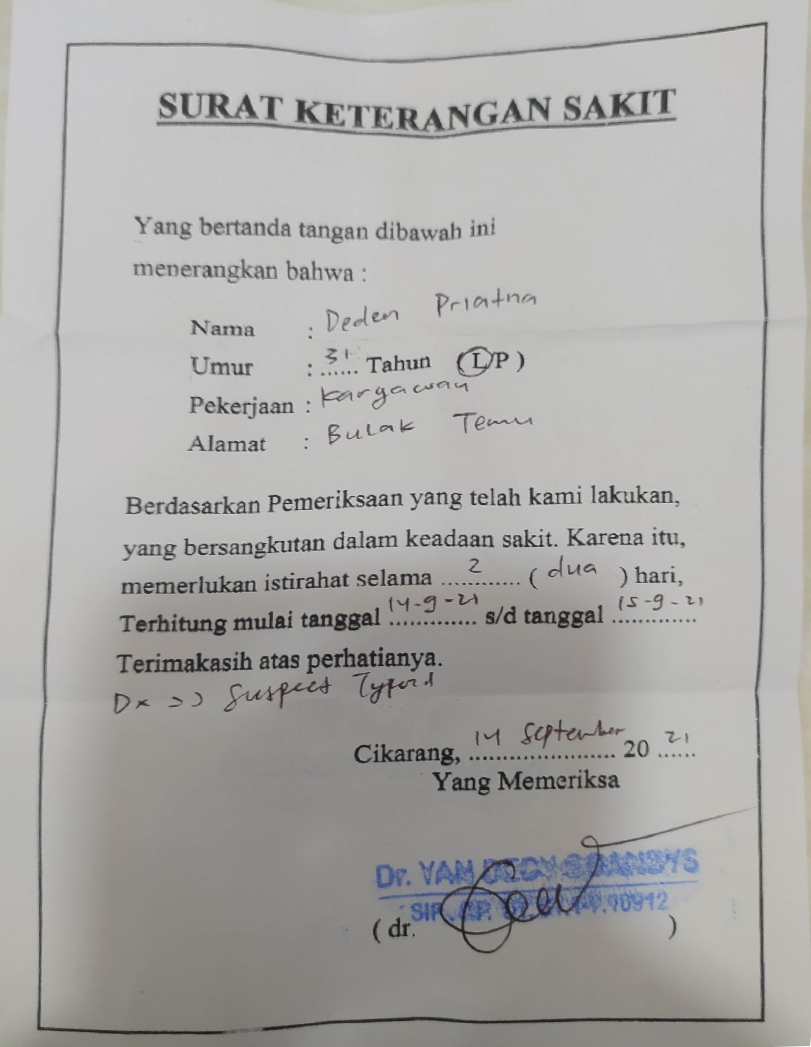 SURAT KETERANGAN SAKIT
Yang bertanda tangan dibawah ini
menerangkan bahwa :
Nama : Deden Priatna
Umur : 31 Tahun (L/P)
Pekerjaan : Kargawan
Alamat : Bulak Temu
Berdasarkan Pemeriksaan yang telah kami lakukan,
yang bersangkutan dalam keadaan sakit. Karena itu,
memerlukan istirahat selama 2 ( dua ) hari,
Terhitung mulai tanggal 14-9-21 s/d tanggal 15-9-21
Terimakasih atas perhatianya.
Dx => Suspect Typoid
Cikarang, 14 September 20 21
Yang Memeriksa
Dr. YAN
SIP. 10912
( dr. )